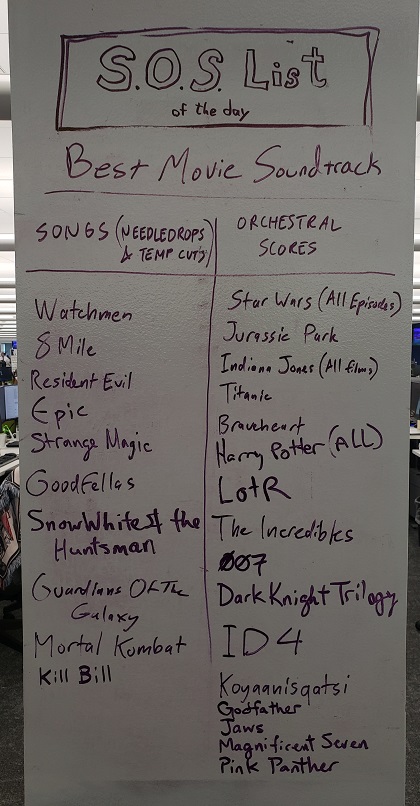 S.O.S. List
of the day
Best Movie Soundtrack
SONGS (NEEDLEDROPS
& TEMP CUTS)
Watchmen
8 Mile
Resident Evil
Epic
Strange Magic
Goodfellas
SnowWhite & the
Huntsman
Guardians Of The
Galaxy
Mortal Kombat
Kill Bill
ORCHESTRAL
SCORES
Star Wars (All Episodes)
Jurassic Park
Indiana Jones (All films)
Titanic
Braveheart
Harry Potter (ALL)
LotR
The Incredibles
007
Dark Knight Trilogy
ID4
Koyaanisqatsi
Godfather
Jaws
Magnificent Seven
Pink Panther